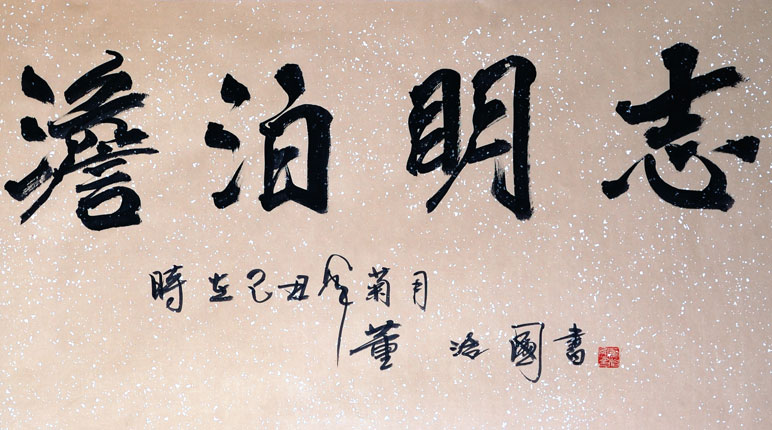 澹泊明志
時在己丑年菊月
董治國書